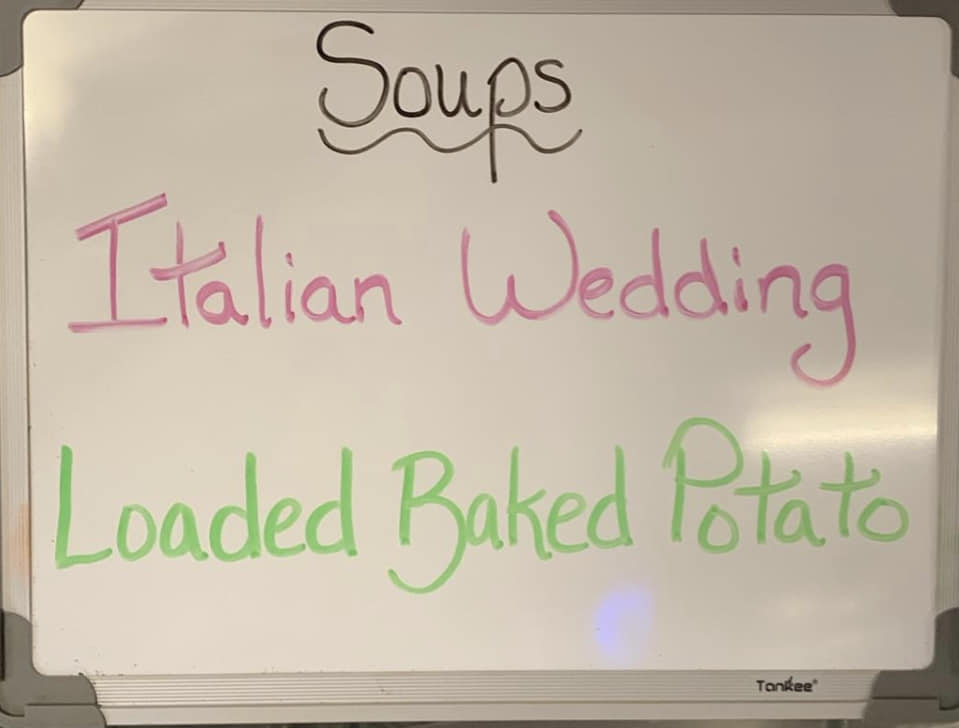 Soups
Italian Wedding
Loaded Baked Potato
Tankee®